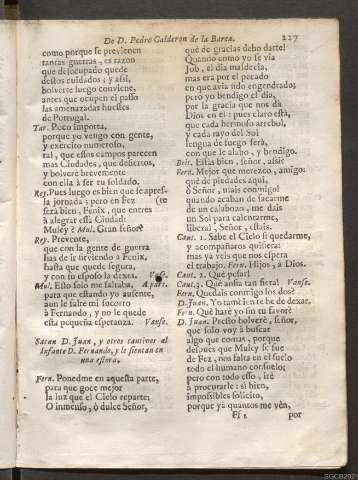 De D. Pedro Calderon de la Barca. 227
como porque se previenen
tantas guerras, es razon
que desocupado quede
destos cuidados; y assi,
bolverte luego conviene,
antes que ocupen el passo
las amenazadas huestes
de Portugal.
Tar. Poco importa,
porque yo vengo con gente,
y exercito numeroso,
tal, que essos campos parecen
mas Ciudades, que desiertos,
y bolveré brevemente
con ella à ser tu soldado.
Rey. Pues luego es bien que se apresse
la jornada; pero en Fez (te
serà bien, Fenix, que entres
à alegrar essa Ciudad:
Muley? Mul. Gran señor?
Rey. Prevente,
que con la gente de guerra
has de ir sirviendo à Fenix,
hasta que quede segura,
y con su esposo la dexes. Vase.
Mul. Esto solo me faltaba, Apart.
para que estando yo ausente,
aun le falte mi socorro
à Fernando, y no le quede
esta pequeña esperanza. Vanse.
Sacan D. Juan, y otros cautivos al
Infante D. Fernando, y le sientan en
una estera.
Fern. Ponedme en aquesta parte,
para que goce mejor
la luz que el Cielo reparte;
O inmenso, ò dulce Señor,
què de gracias debo darte!
Quando como yo se via
Job, el dia maldecia,
mas era por el pecado
en que avia sido engendrado;
pero yo bendigo el dia,
por la gracia que nos dà
Dios en el: pues claro està,
que cada hermoso arrebol,
y cada rayo del Sol
lengua de fuego serà,
con que le alabo, y bendigo.
Brit. Estàs bien, señor, assi?
Fern. Mejor que merezco, amigo:
què de piedades aqui,
ò Señor, usais conmigo!
quando acaban de sacarme
de un calabozo, me dais
un Sol para calentarme,
liberal, Señor, estais.
Caut. 1. Sabe el Cielo si quedarme,
y acompañaros quisiera:
mas yà veis que nos espera
el trabajo. Fern. Hijos, à Dios.
Caut. 2. Què pesar!
Caut. 3. Què ansia tan fiera! Vanse.
Fern. Quedais conmigo los dos?
D. Juan. Yo tambien te he de dexar.
Fern. Què harè yo sin tu favor?
D. Juan. Presto bolverè, señor,
que solo voy à buscar
algo que comas, porque
despues que Muley se fue
de Fez, nos falta en el suelo
todo el humano consuelo;
pero con todo esso, irè
à procurarle: si bien,
impossibles solicito,
porque yà quantos me vèn,
Ff 2 por
SGCB202